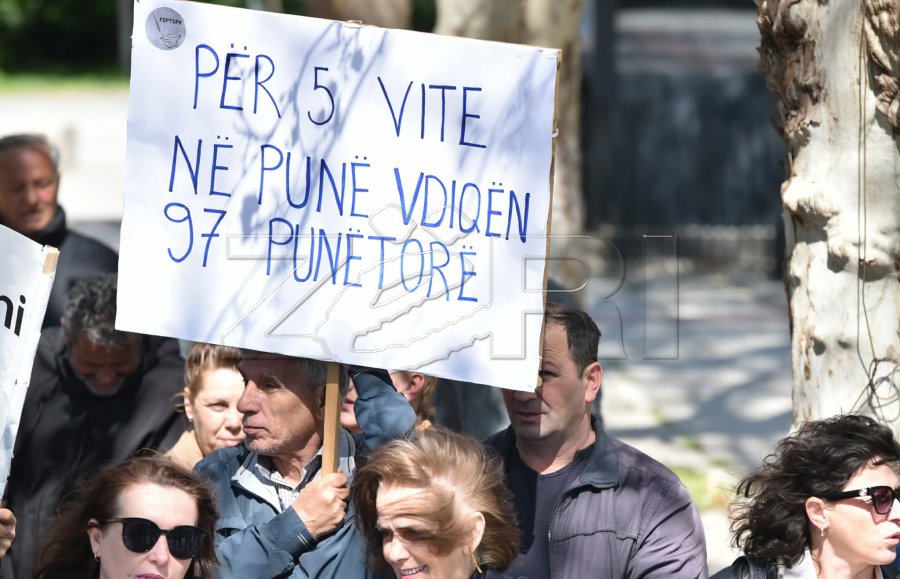 FSPTSPK
PËR 5 VITE
NË PUNË VDIQËN
97 PUNËTORË
ni
ZËRI